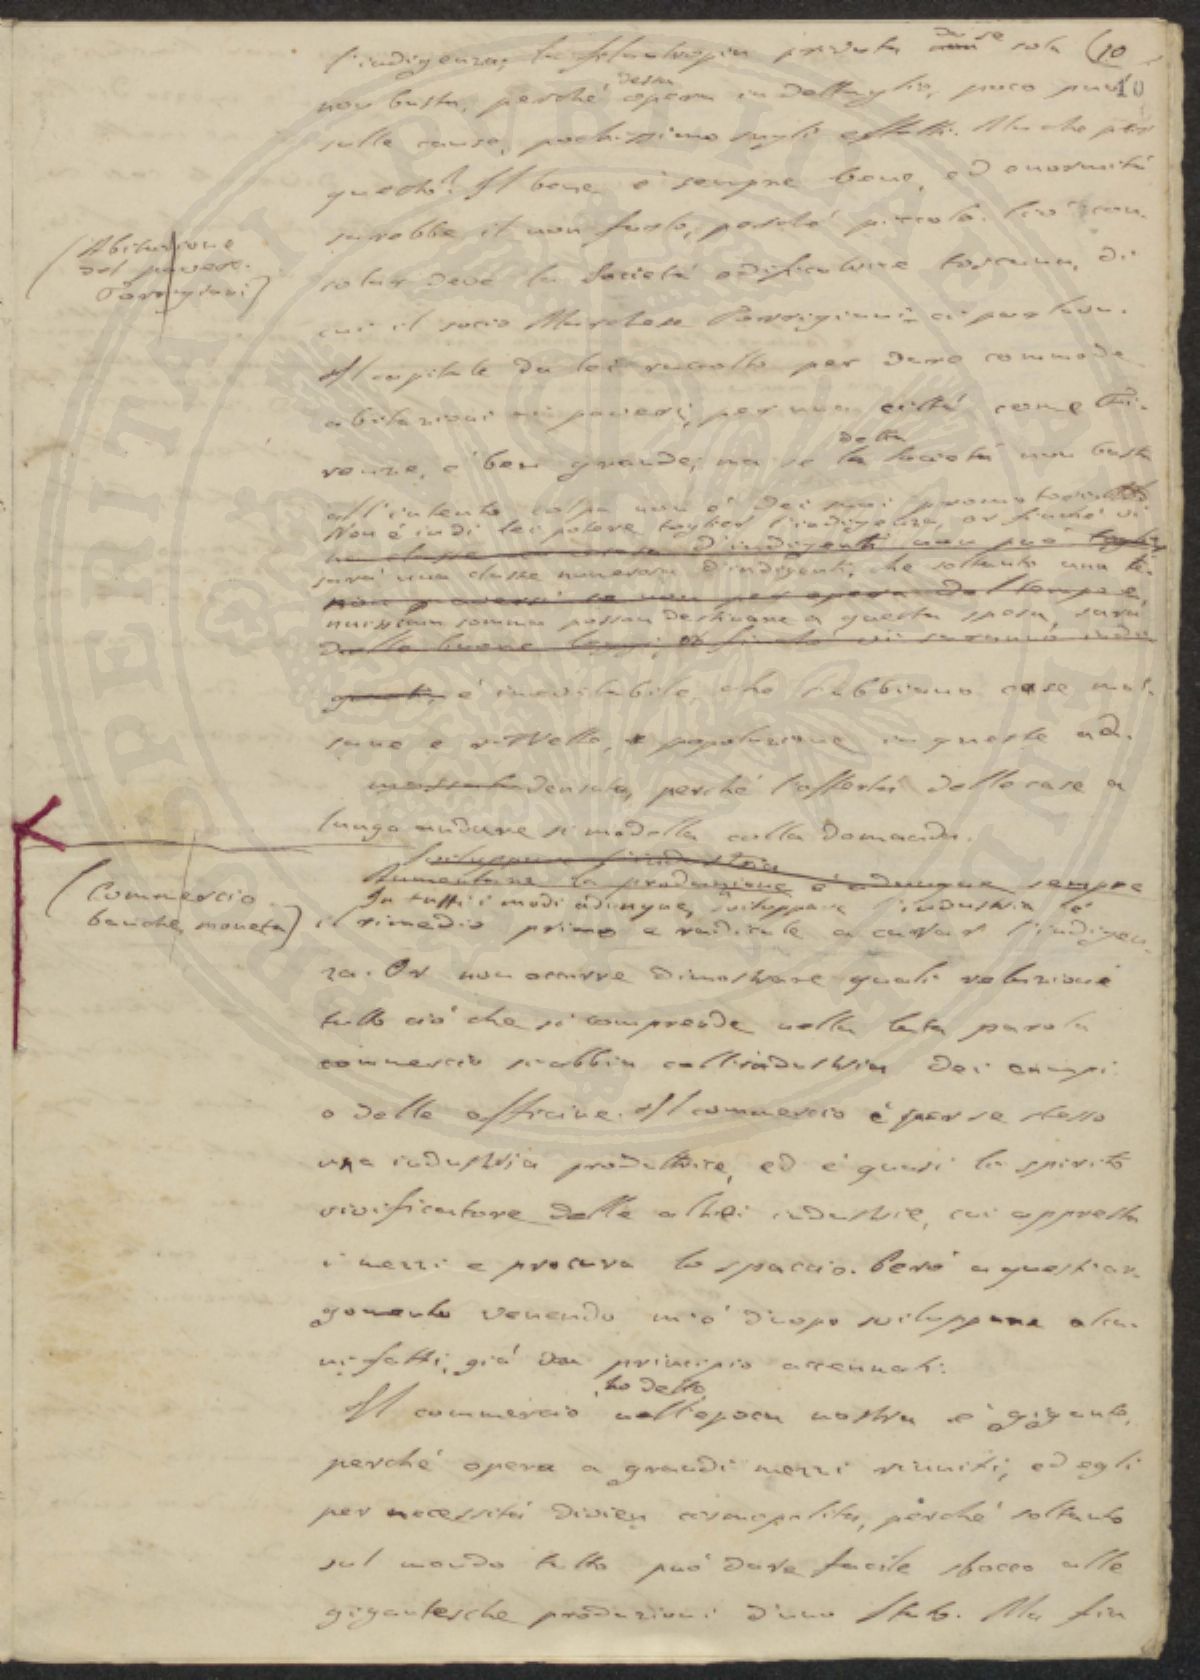 l'indigenza; la filantropia privata da se sola (10
non basta, perché dessa opera in dettaglio, poco può 10
sulle cause, pochissimo sugli effetti. Ma che per
questo? Il bene è sempre bene, ed enormità
sarebbe il non farlo, perché piccolo. Ciò con-
(Abitazione
del povere.
Torrigiani)
solar deve la Società edificatrice toscana, di
cui il socio Marchese Torrigiani ci parlava.
Il capitale da lei raccolto per dare commode
abitazioni ai poveri, per una città come Fi-
renze, è ben grande; ma se detta la Società non basta
all'intento colpa non è dei suoi promotori.
Non è in di lei potere toglier l'indigenza, or finché vi
na classe numerosa d'indigenti non può
sarà una classe numerosa d'indigenti, che soltanto una te-
non se non per opera del tempo e
nuissima somma possan destinare a questa spesa, sarà
delle buone leggi, or finché vi saranno indi
genti, è inevitabile che s'abbiano case mal-
sane e ristrette, e popolazione in queste ad-
densata, perché l'offerta delle case a
lungo andare si modella colla domanda.
Sviluppare l'industria
Aumentare la produzione è adunque sempre
In tutti i modi adunque, sviluppare l'industria è
(Commercio
banche, moneta)
il rimedio primo e radicale a curar l'indigen-
za. Or non occorre dimostrare quali relazioni
tutto ciò che si comprende nella lata parola
commercio s'abbia coll'industria dei campi
o delle officine. Il commercio è per se stesso
una industria produttrice, ed è quasi lo spirito
vivificatore delle altre industrie, cui appresta
i mezzi e procura lo spaccio. Però a quest'ar-
gomento venendo m'è d'uopo sviluppare alcu-
ni fatti, già da principio accennati.
Il commercio, ho detto, nell'epoca nostra è gigante,
perché opera a grandi mezzi riuniti, ed egli
per necessità divien cosmopolita, perché soltanto
sul mondo tutto può dare facile sbocco alle
gigantesche produzioni d'uno Stato. Ma fin